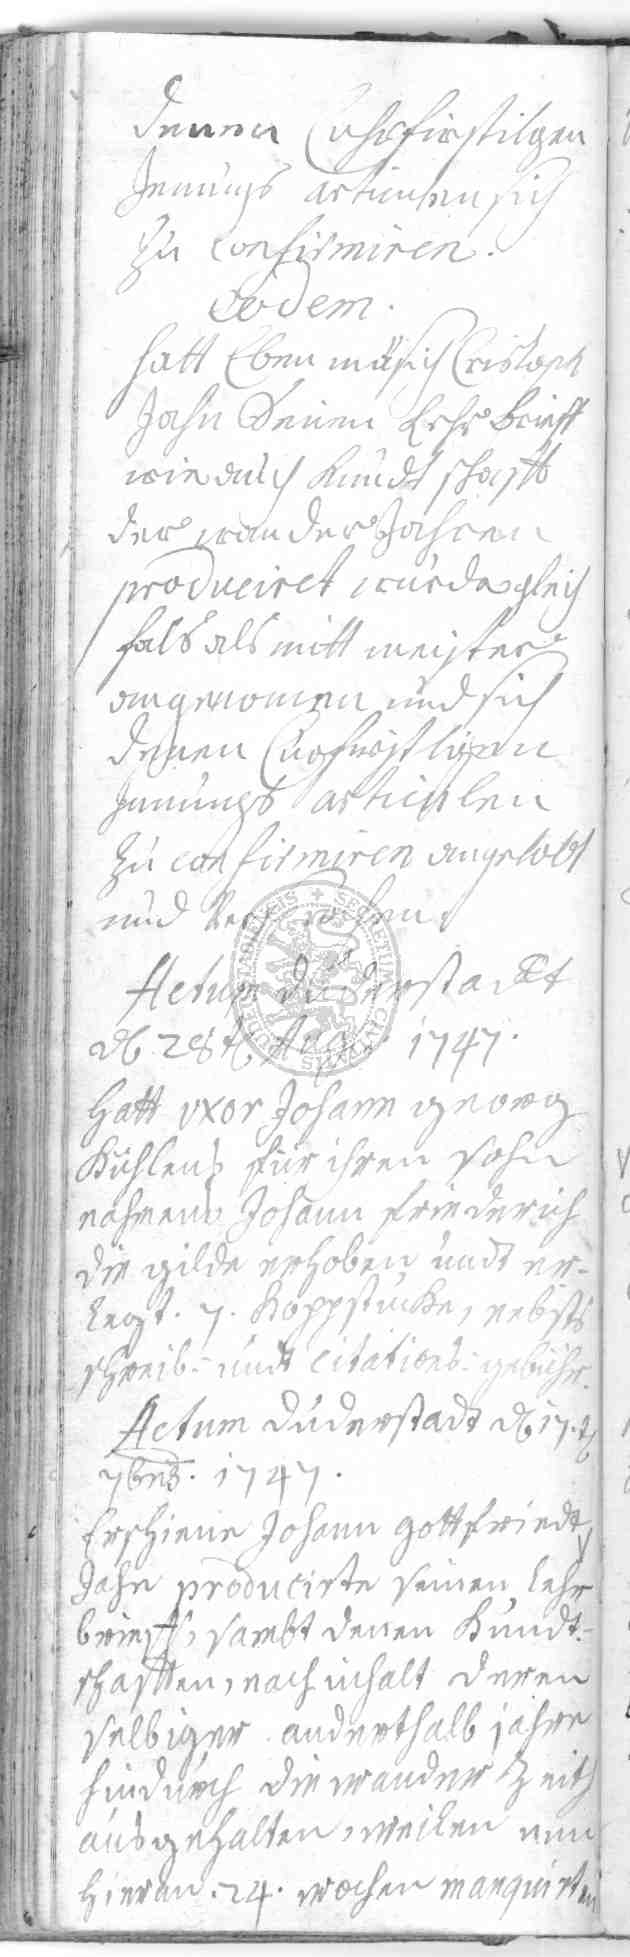 denen Cuhrfürstilgen
Innungs articulen sich
zu confirmiren.
eodem.
hatt Eben mäsich Cristoph
Jahn Seinen Lehr brieff
wie auch Kundtschafft
der wander Jahren
produciret wurde gleich
fals als mitt meister
angenomen und sich
denen Curfürstligen
Innungs articulen
zu confirmiren angelobt
und
Actum duderstadt
d 28t Aug. 1747.
Hatt uxor Johann georg
Kühlens für ihren sohn
nahmens Johann friederich
die gilde erhoben undt er-
legt. 7. Koppstücke, nebst
schreib- undt citations-gebühr.
Actum duderstadt d 17.t
7bris. 1747.
Erschiene Johann gottfriedt
Jahn producirte seinen lehr
brieff, sambt denen Kundt-
schafften, nach inhalt deren
selbiger anderthalb jahre
hindurch die wander Zeith
ausgehalten, weilen nun
hieran .24. wochen manquirten
SECRETUM CIVITATIS DUDERSTADIENSIS